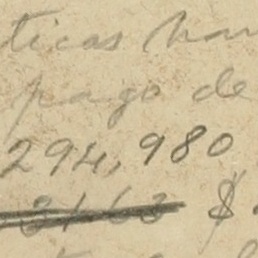 ticas han
pago de
294,980
3163 $